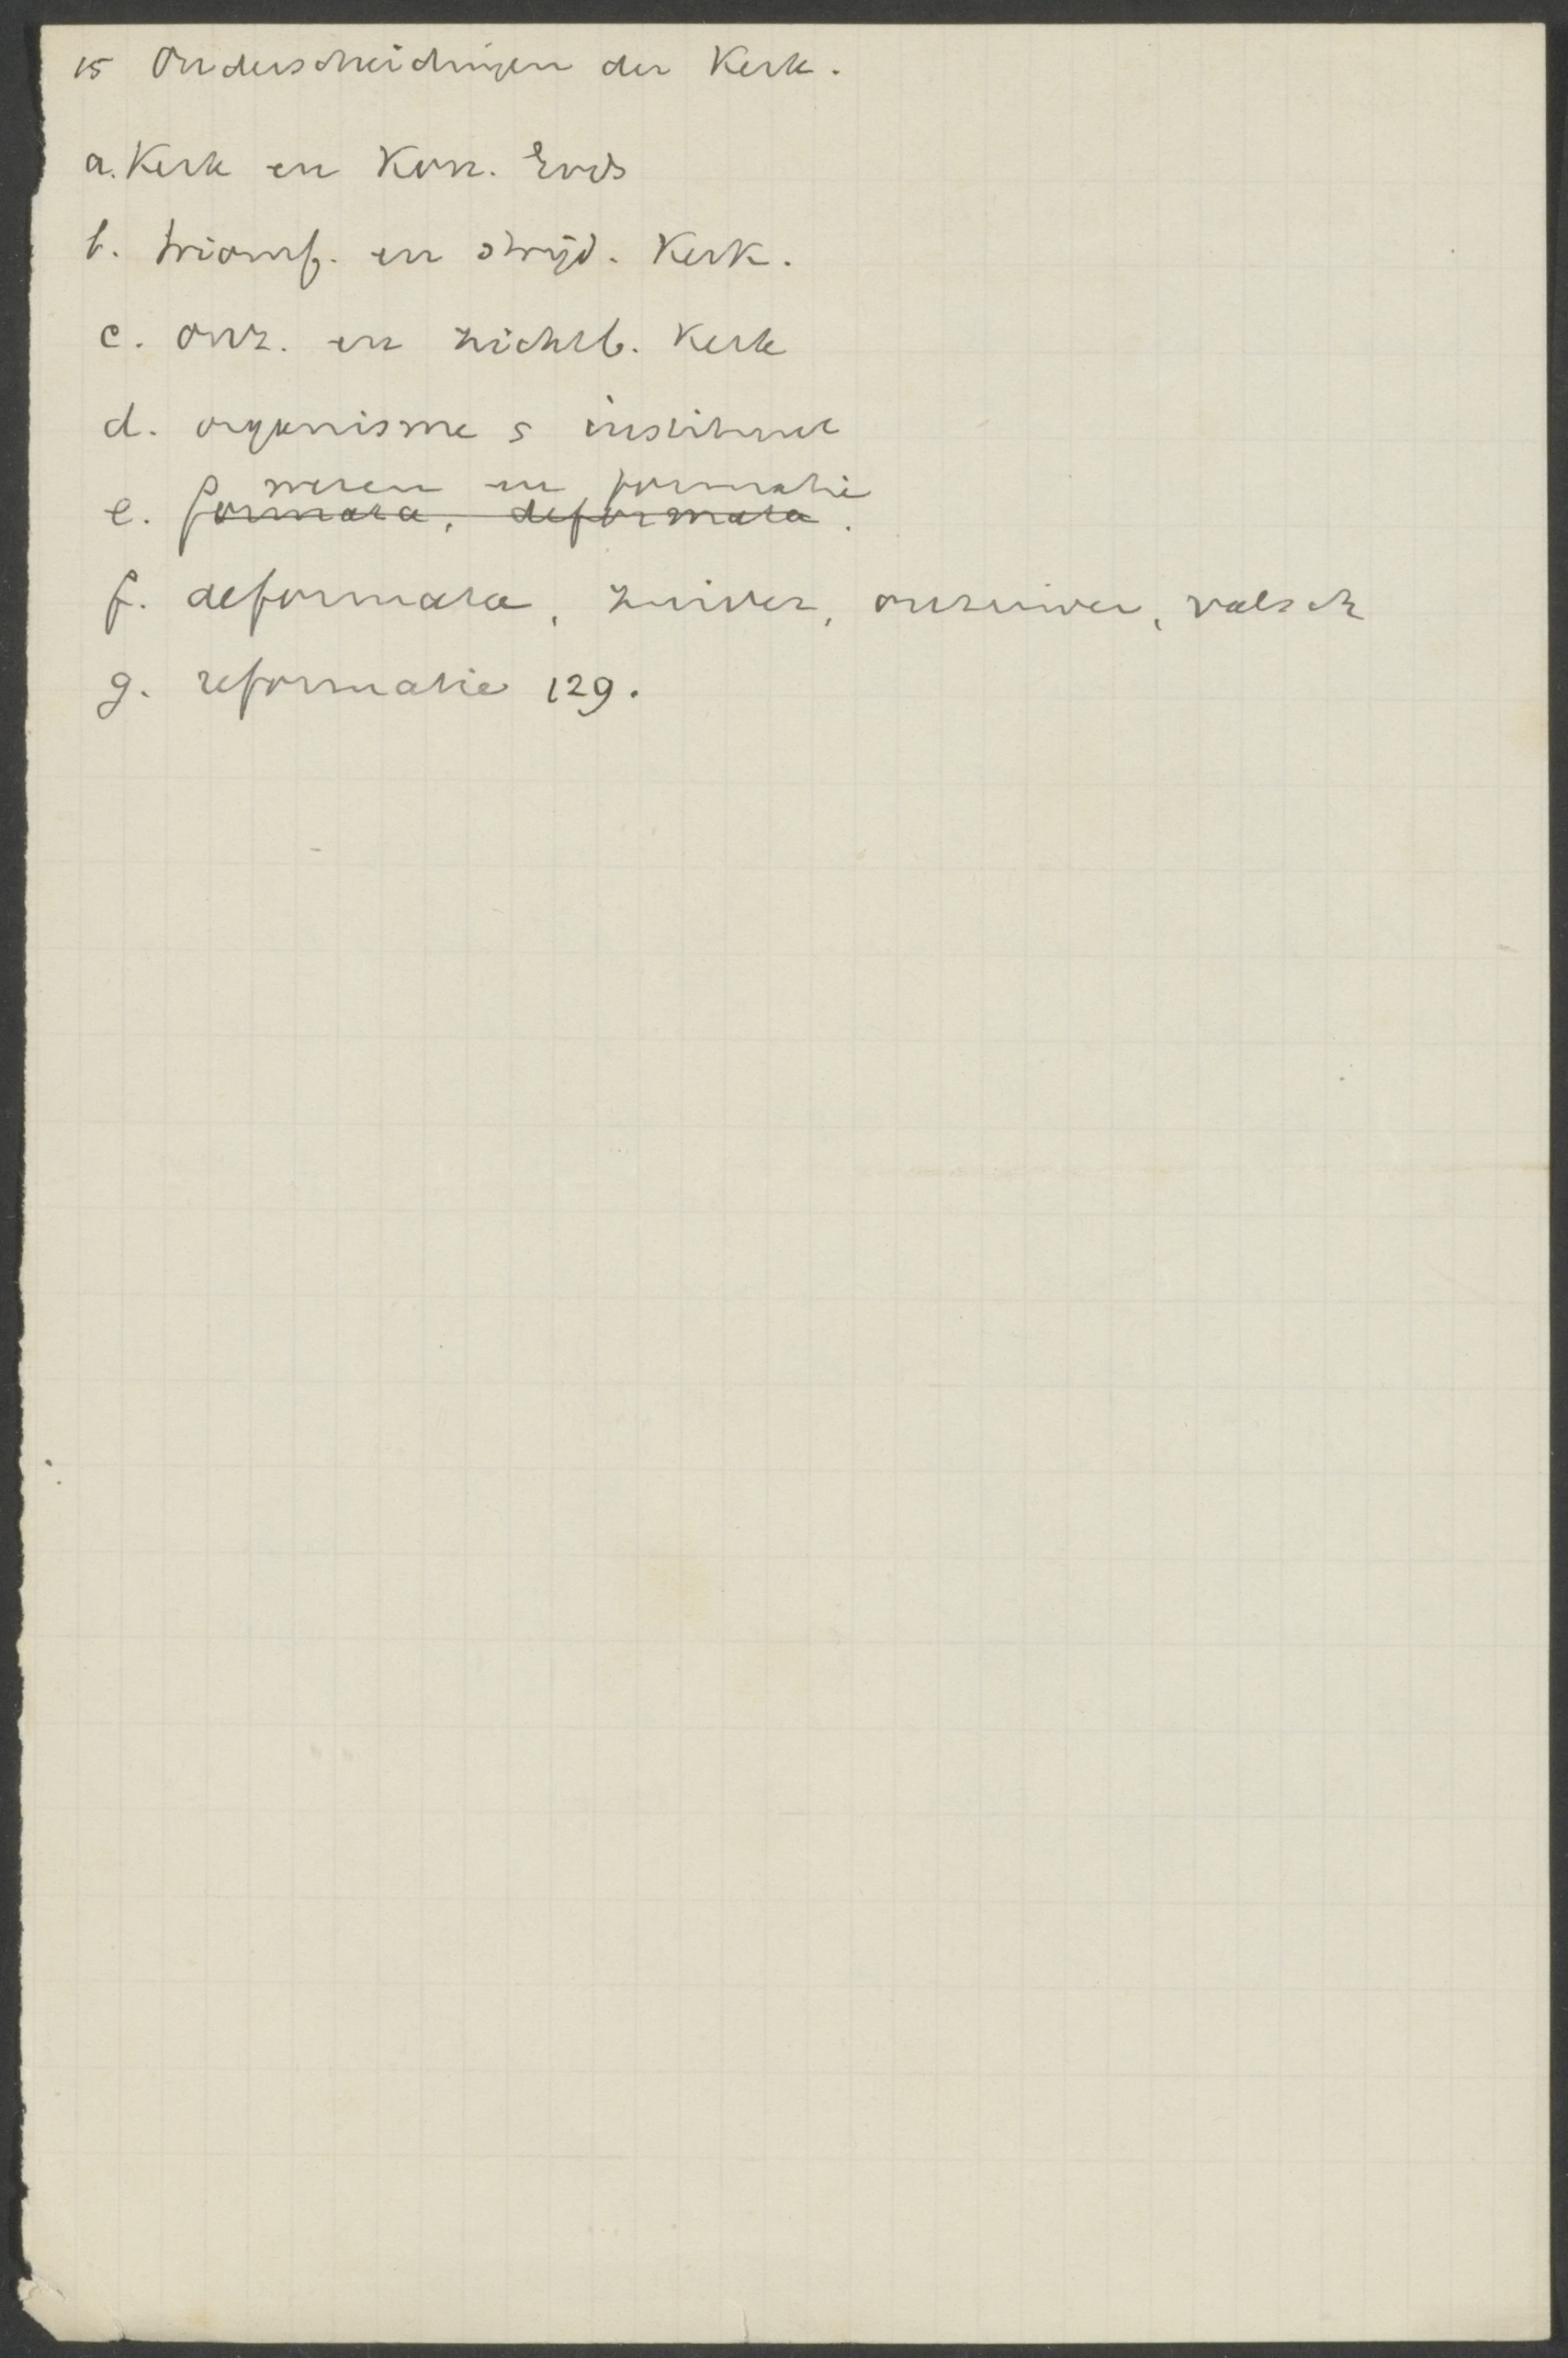 15 Onderscheidingen der Kerk.
a. Kerk en Kon. Gods
b. triomf. en strijd. Kerk.
c. onz. en zichtb. Kerk
d. organisme s instituut
wezen en formatie
e. formata, deformata.
f. deformata, zuiver, onzuiver, valsch
g. reformatie 129.